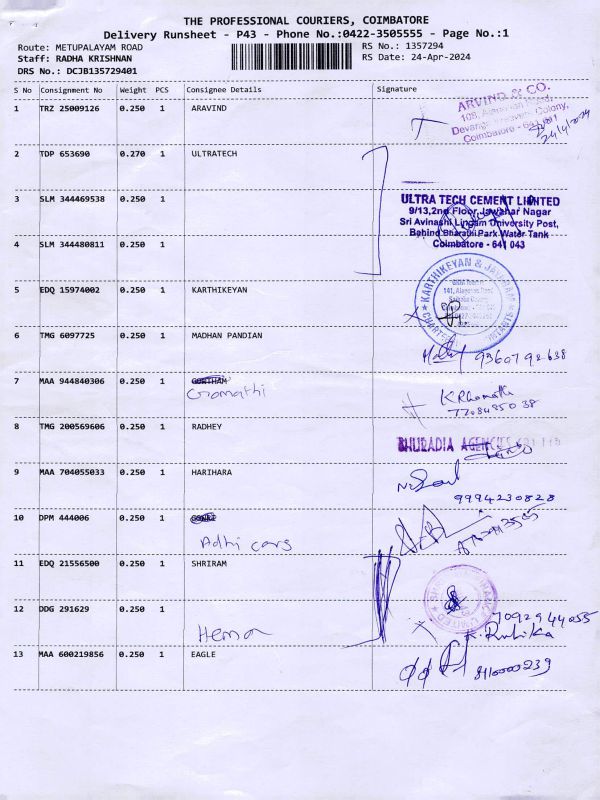 THE PROFESSIONAL COURIERS, COIMBATORE
Delivery Runsheet - P43 - Phone No.:0422-3505555 - Page No.:1
Route: METUPALAYAM ROAD
RS No.: 1357294
Staff: RADHA KRISHNAN
RS Date: 24-Apr-2024
DRS No.: DCJB135729401
S No Consignment No Weight PCS Consignee Details Signature
1 TRZ 25009126 0.250 1 ARAVIND
ARVIND & CO.
Coimbatore - 641 011
24/4/2024
2 TDP 653690 0.270 1 ULTRATECH
3 SLM 344469538 0.250 1
ULTRA TECH CEMENT LIMITED
9/13,2nd Floor, Jawahar Nagar
Sri Avinashi Lingam University Post,
Behind Bharathi Park Water Tank
Coimbatore - 641 043
4 SLM 344480811 0.250 1
5 EDQ 15974002 0.250 1 KARTHIKEYAN
KARTHIKEYAN & JAYARAM
CHARTERED ACCOUNTANTS
6 TMG 6097725 0.250 1 MADHAN PANDIAN
9360792638
7 MAA 944840306 0.250 1 GOWTHAM
Gomathi
8 TMG 200569606 0.250 1 RADHEY
BHURADIA AGENCIES
9 MAA 704055033 0.250 1 HARIHARA
9994230828
10 DPM 444006 0.250 1
Adhi cars
11 EDQ 21556500 0.250 1 SHRIRAM
12 DDG 291629 0.250 1
Hema
7092944055
13 MAA 600219856 0.250 1 EAGLE